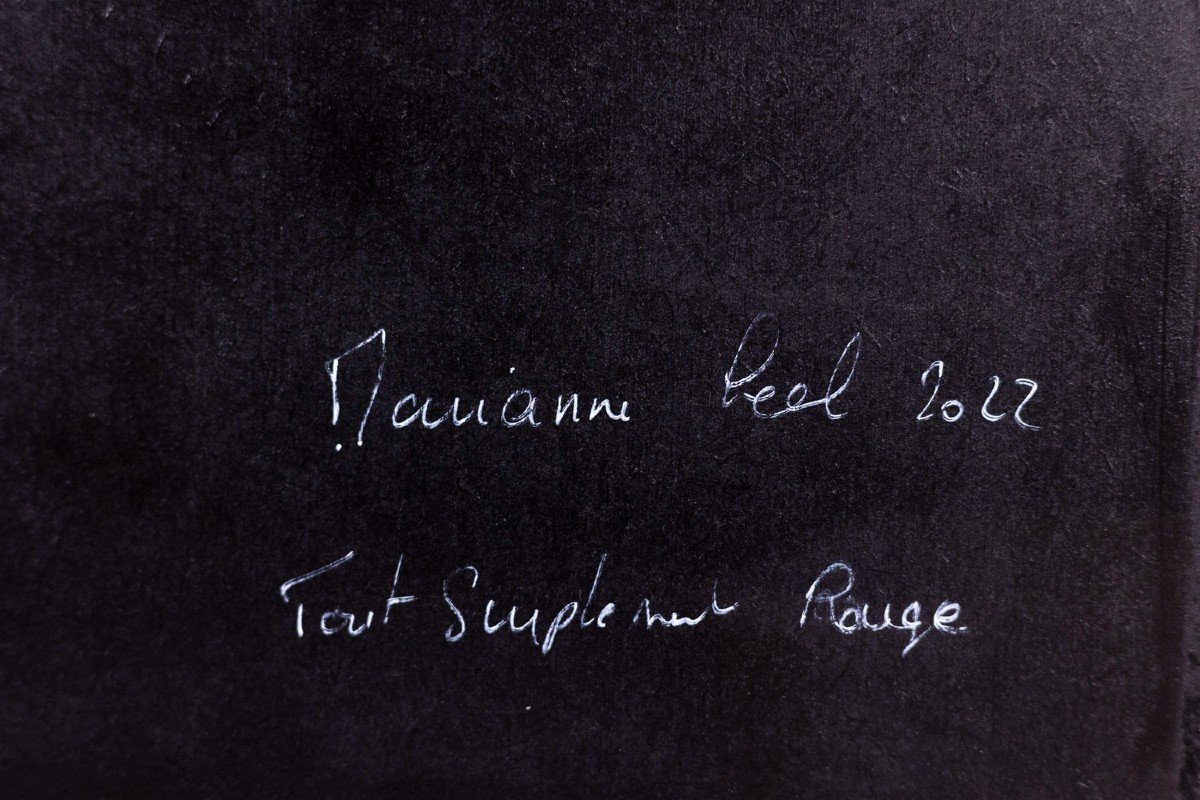 Marianne Peel 2022
Tout Simplement Rouge